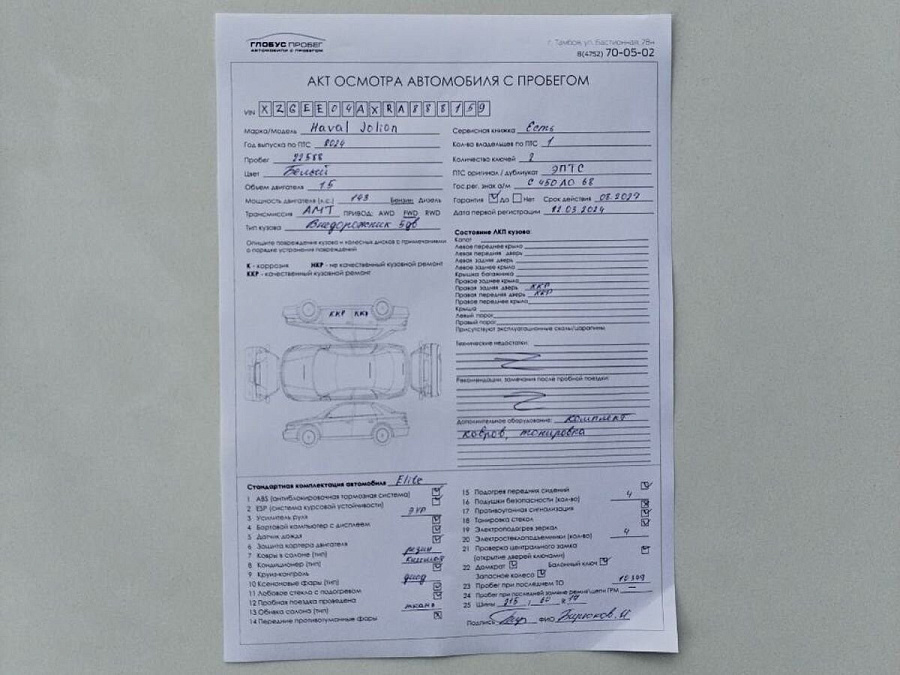 ГЛОБУС ПРОБЕГ
АВТОМОБИЛИ С ПРОБЕГОМ
г. Тамбов, ул. Бастионная, 28н
8(4752) 70-05-02
АКТ ОСМОТРА АВТОМОБИЛЯ С ПРОБЕГОМ
VIN XZGEE04AXRA888159
Марка/Модель Haval Jolion
Год выпуска по ПТС 2024
Пробег 22588
Цвет Белый
Объем двигателя 1.5
Мощность двигателя (л.с.) 143 Бензин Дизель
Трансмиссия АМТ ПРИВОД: AWD FWD RWD
Тип кузова Внедорожник 5дв
Опишите повреждения кузова и колесных дисков с примечаниями
о порядке устранения повреждений
К - коррозия НКР - не качественный кузовной ремонт
ККР - качественный кузовной ремонт
ККР ККР
Сервисная книжка Есть
Кол-во владельцев по ПТС 1
Количество ключей 2
ПТС оригинал / дубликат ЭПТС
Гос.рег. знак а/м С 450 ЛО 68
Гарантия Да Нет Срок действия 08.2027
Дата первой регистрации 12.03.2024
Состояние ЛКП кузова:
Капот
Левое переднее крыло
Левая передняя дверь
Левая задняя дверь
Левое заднее крыло
Крышка багажника
Правое заднее крыло
Правая задняя дверь ККР
Правая передняя дверь ККР
Правое переднее крыло
Крыша
Левый порог
Правый порог
Присутствуют эксплуатационные сколы/царапины
Технические недостатки:
Рекомендации, замечания после пробной поездки:
Дополнительное оборудование: комплект
ковров, тонировка
Стандартная комплектация автомобиля Elite
1 ABS (антиблокировочная тормозная система)
2 ESP (система курсовой устойчивости)
3 Усилитель руля ЭУР
4 Бортовой компьютер с дисплеем
5 Датчик дождя
6 Защита картера двигателя
7 Ковры в салоне (тип) резин
8 Кондиционер (тип)
9 Круиз-контроль
10 Ксеноновые фары (тип) диод
11 Лобовое стекло с подогревом
12 Пробная поездка проведена
13 Обивка салона (тип) ткань
14 Передние противотуманные фары
15 Подогрев передних сидений
16 Подушки безопасности (кол-во) 4
17 Противоугонная сигнализация
18 Тонировка стекол
19 Электроподогрев зеркал
20 Электростеклоподъемники (кол-во) 4
21 Проверка центрального замка
(открытие дверей ключами)
22 Домкрат Балонный ключ
Запасное колесо
23 Пробег при последнем ТО
24 Пробег при последней замене ремня/цепи ГРМ —
25 Шины 215 / 60 x 17
Подпись ФИО Бирюков И